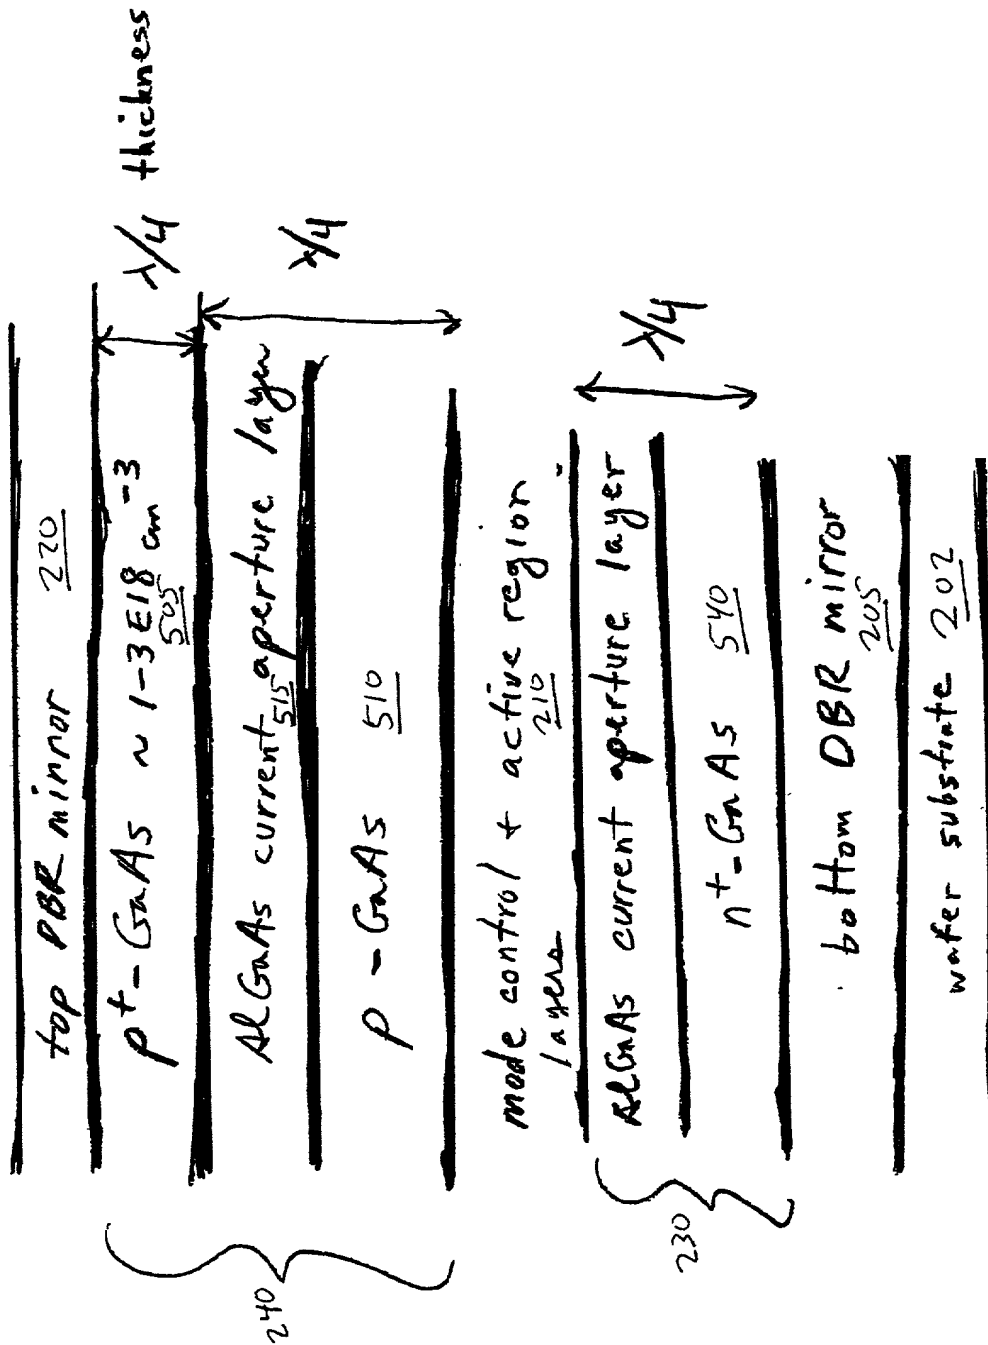 top DBR mirror 220
p+-GaAs ~ 1-3E18 cm-3
505
λ/4 thickness
AlGaAs current aperture layer
515
p-GaAs 510
λ/4
240
mode control + active region
layers 210
AlGaAs current aperture layer
n+-GaAs 540
λ/4
230
bottom DBR mirror
205
wafer substrate 202